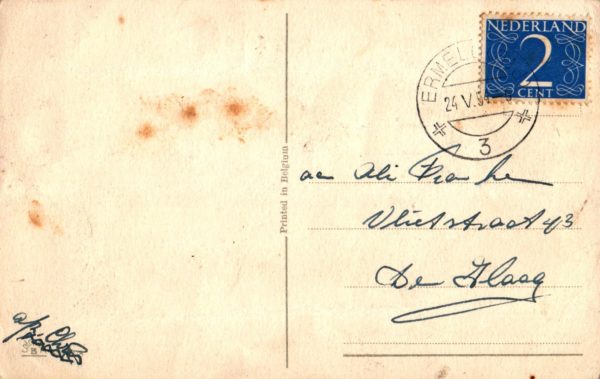 NEDERLAND
2
CENT
ERMEL
24 V.5
3
Printed in Belgium
aan Ali Franke
Vlietstraat 43
Den Haag